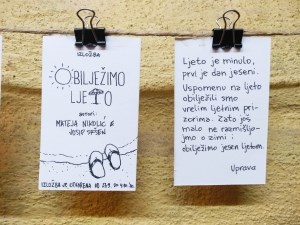 IZLOŽBA
OBILJEŽIMO
LJETO
autori:
MATEJA NIKOLIĆ &
JOSIP
IZLOŽBA JE OTVORENA OD
Ljeto je minulo,
prvi je dan jeseni.
Uspomenu na ljeto
obilježili smo
vrelim ljetnim pri-
zorima. Zato još
malo ne razmišlja-
jmo o zimi i
obilježimo jesen ljetom.
Uprava